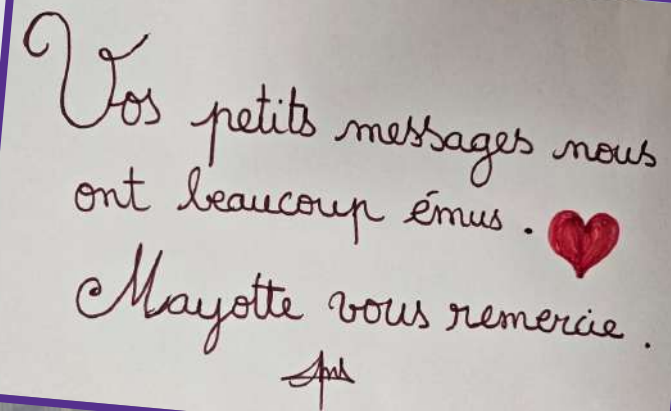 Vos petits messages nous
ont beaucoup émus.
Mayotte vous remercie.